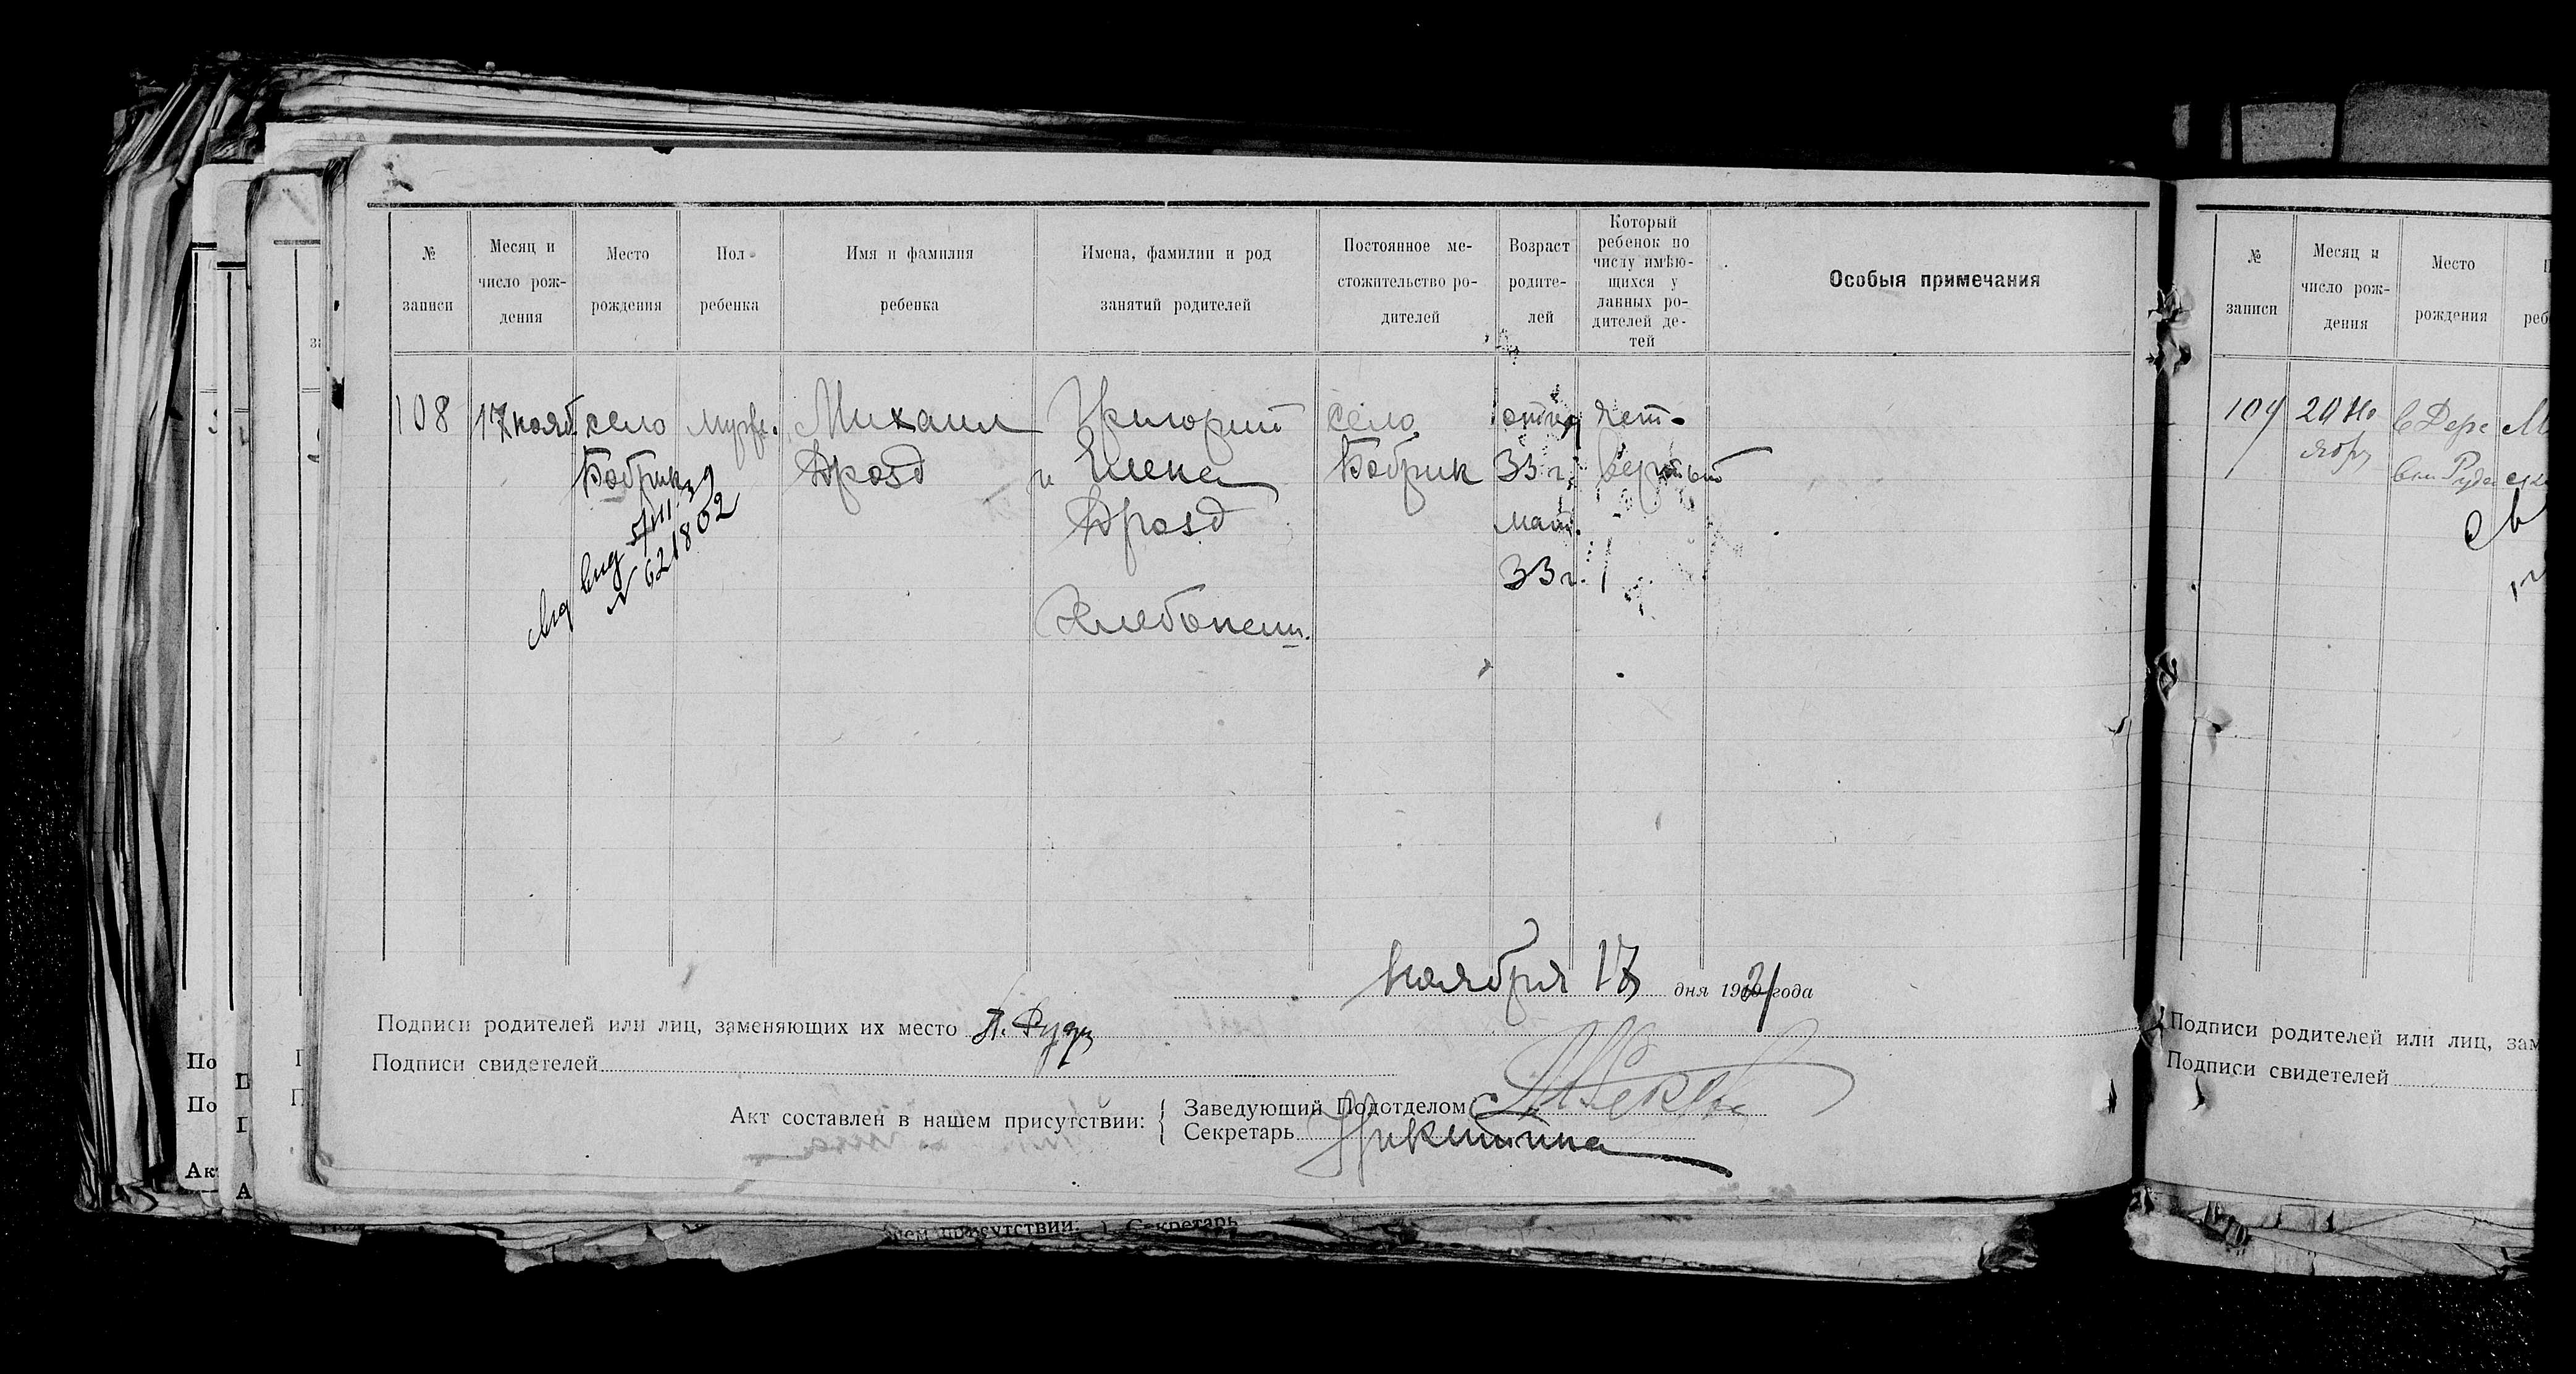 № записи
Месяц и число рождения
Место рождения
Пол ребенка
Имя и фамилия ребенка
Имена, фамилии и род занятий родителей
Постоянное местожительство родителей
Возраст родителей
Который ребенок по числу имѣющихся у данных родителей детей
Особыя примечания
108 17 нояб. село мужс. Михаил Григорий село отца чет-
Бобрик Дрозд и Елена Бобрик 33 г. вертый
Дрозд мат.
33 г.
Хлебопаш.
№ 621802
ноября 17 дня 1921 года
Подписи родителей или лиц, заменяющих их место
Подписи свидетелей
Акт составлен в нашем присутствии:
Заведующий Подотделом
Секретарь Никитина
№ записи
Месяц и число рождения
Место рождения
109 20 Но
ябр
Подписи родителей или лиц, зам
Подписи свидетелей